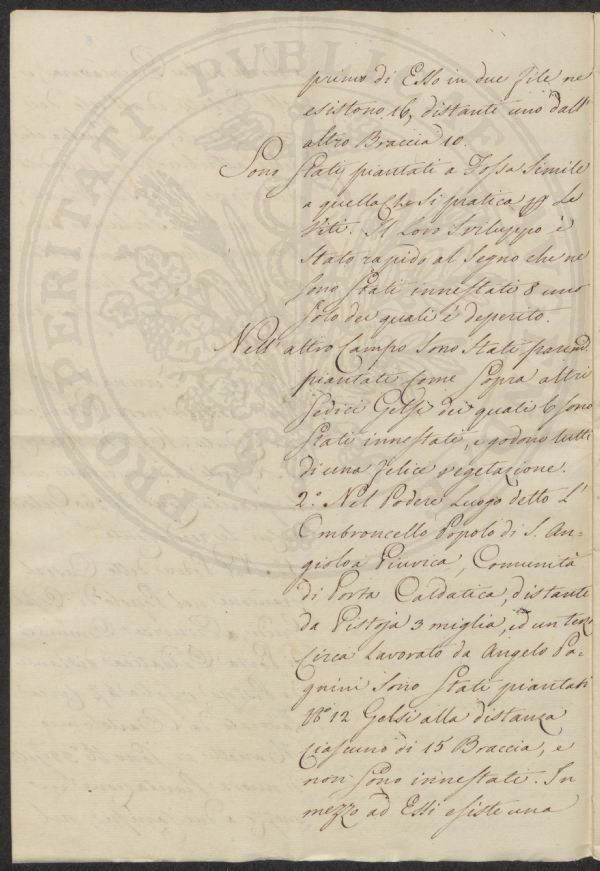 PROSPERITATI PVBLICAE
primo di Esso in due file ne
esistono 16, distanti uno dall'
altro Braccia 10.
Sono Stati piantati a Fossa Simile
a quella che si pratica p le
Viti. Il Loro Sviluppo è
Stato rapido al Segno che ne
Sono Stati innestati 8 uno
Solo dei quali è deperito.
Nell' altro Campo Sono Stati parim.
piantati Come Sopra altri
Sedici Gelsi dei quali 6 Sono
Stati innestati, e godono tutti
di una felice vegetazione.
2.° Nel Podere Luogo detto L'
Ombroncello Popolo di S. An-
giolo a Piuvica, Comunità
di Porta Caldatica, distante
da Pistoja 3 miglia, ed un terzo
Circa Lavorato da Angelo Pa-
gnini Sono Stati piantati
N° 12 Gelsi alla distanza
Ciascuno di 15 Braccia, e
non Sono innestati. In
mezzo ad Essi esiste una